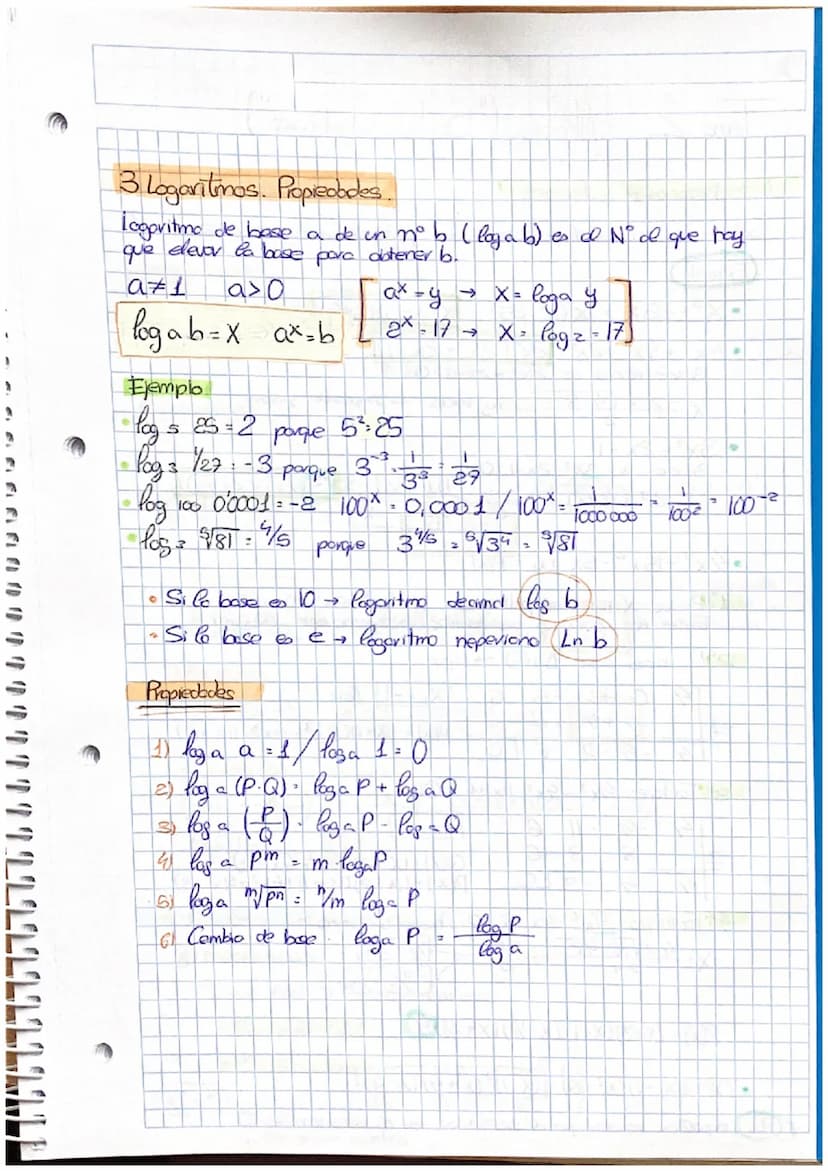 3 Logaritmos. Propiedades.
Logaritmo de base a de un nº b (log a b) es el Nº al que hay
que elevar la base para obtener b.
a≠1 a>0 [ aˣ = y → x = logₐ y
log a b = x aˣ = b 2ˣ = 17 → x = log₂ = 17 ]
Ejemplo
• log 5 25 = 2 porque 5² = 25
• log 3 1/27 = -3 porque 3⁻³ = 1/3³ = 1/27
• log 100 0'0001 = -2 100ˣ = 0,0001 / 100ˣ = 1/1000000 = 1/100² = 100⁻²
• log 3 ⁵√81 = 4/5 porque 3^4/5 = ⁵√3⁴ = ⁵√81
• Si la base es 10 → logaritmo decimal log b
• Si la base es e → logaritmo neperiano Ln b
Propiedades
1) log a a = 1 / log a 1 = 0
2) log a (P·Q) = log a P + log a Q
3) log a (P/Q) = log a P - log a Q
4) log a Pᵐ = m·log a P
5) log a ᵐ√Pⁿ = n/m log a P
6) Cambio de base. log a P = log P / log a